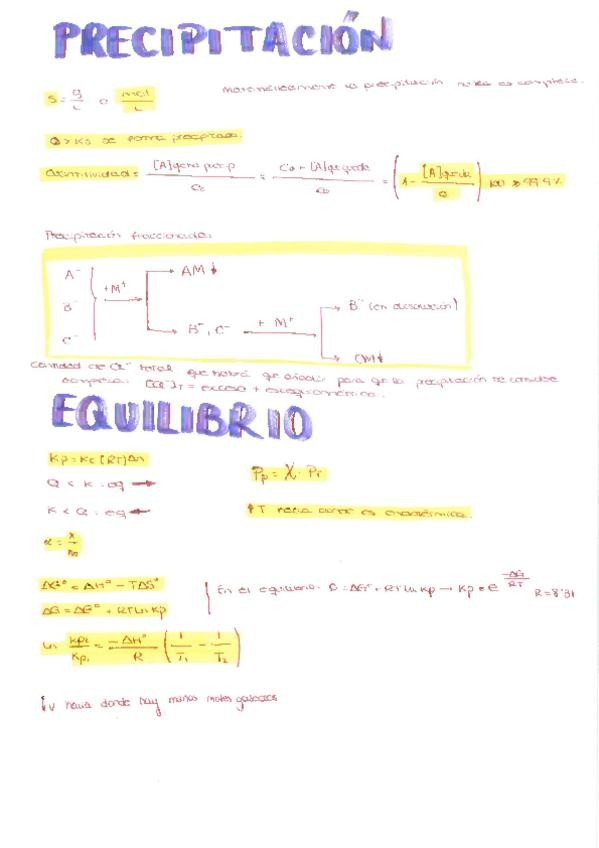 PRECIPITACIÓN
S = g/L o mol/L
Matemáticamente la precipitación nunca es completa.
Q > Ks se forma precipitado.
= [A] que ha precip / Co = Co - [A] que queda / Co = (1 - [A] queda / Co) 100 ≥ 99.9%
Precipitación fraccionada:
A⁻
B⁻
C⁻
+ M⁺
AM ↓
B⁻, C⁻
+ M⁺
B⁻ (en disolución)
CM ↓
Cantidad de Cl⁻ total que habrá que añadir para que la precipitación se considere
completa. [Cl⁻]T = exceso + estequiométrica.
EQUILIBRIO
Kp = Kc (RT)Δn
Pp = X · PT
Q < K : eq →
K < Q : eq ←
↑T hacia donde es endotérmica.
α = x/no
ΔG° = ΔH° - TΔS°
ΔG = ΔG° + RT ln Kp
En el equilibrio: 0 = ΔG° + RT ln Kp → Kp = e -ΔG/RT R = 8'31
ln Kp2/Kp1 = -ΔH°/R (1/T1 - 1/T2)
↓V hacia donde hay menos moles gaseosos